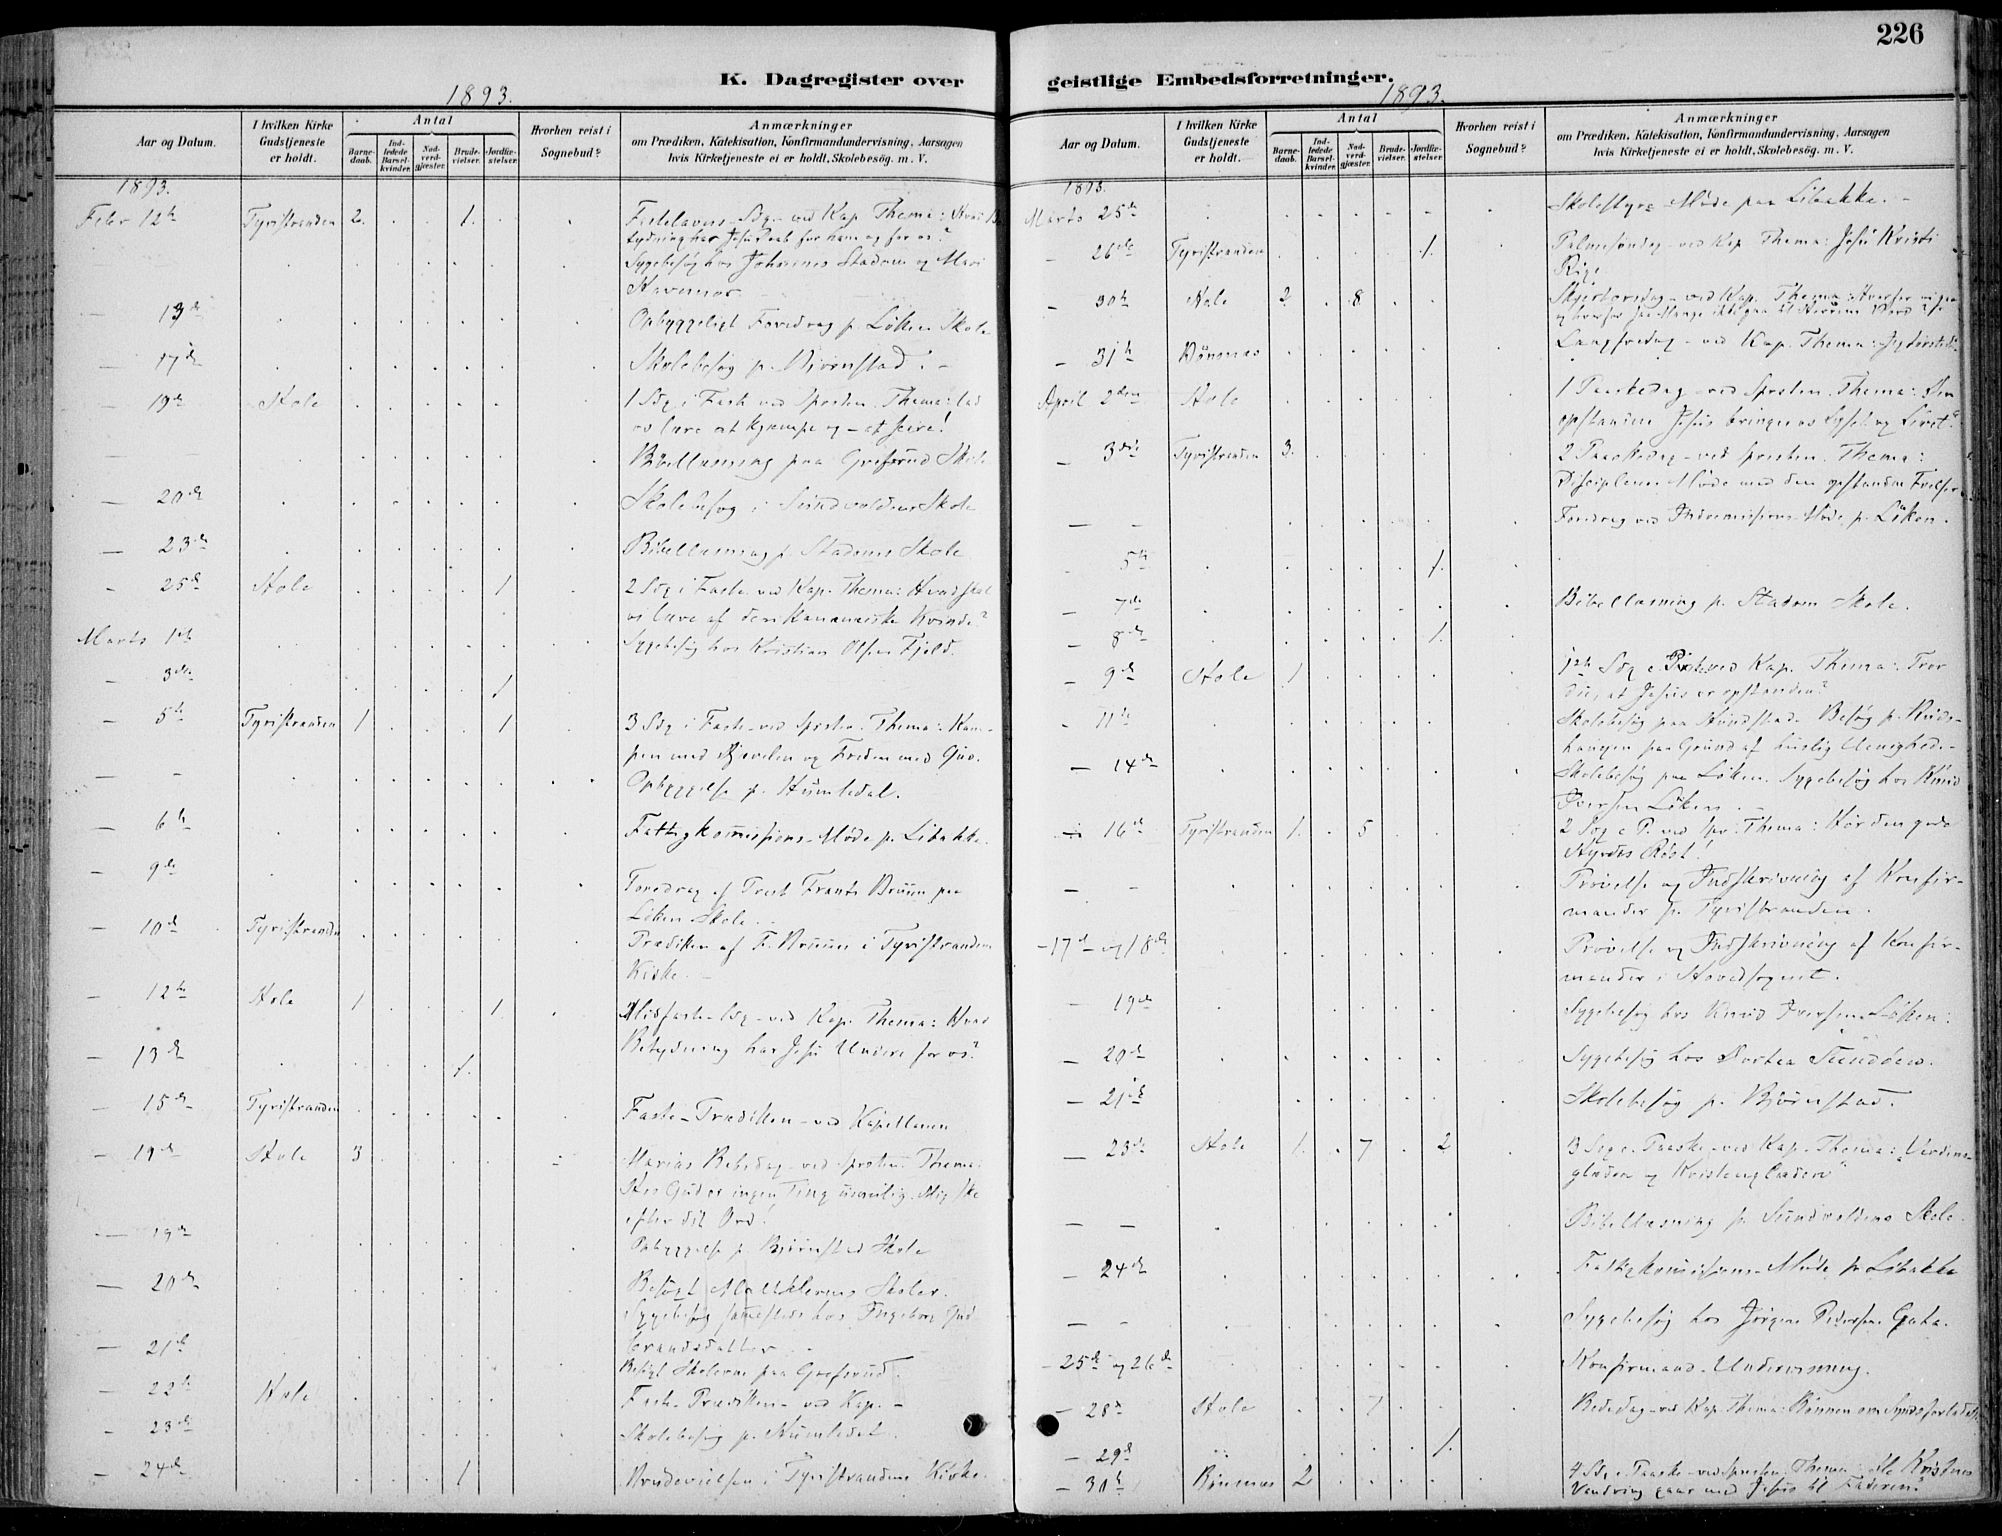 226
K. Dagregister over geistlige Embedsforretninger.
1893.
1893.
Aar og Datum.
I hvilken Kirke Gudstjeneste er holdt.
Antal
Barnedaab.
Indledede Barselkvinder.
Nadverdgjæster.
Brudevielser.
Jordfæstelser.
Hvorhen reist i Sognebud?
Anmærkninger
om Prædiken, Katekisation, Konfirmandundervisning, Aarsagen
hvis Kirketjeneste ei er holdt, Skolebesög. m. V.
1893.
Febr 12te Tyristranden 2. 1. Fastelavns-Sdg - ved Kap. Thema: Hvad Be
tydning har Jesu Daab for ham og for os?
Sygebesøg hos Johannes Stadum og Mari
— 13de Opbyggeligt Foredrag p. Löken Skole
— 17de Skolebesøg p. Bjørnstad. -
— 19de Hole 1 Sdg i Faste ved Sprsten. Thema: Lad
os lære at kjæmpe og - at seire!
Bibellæsning paa Gresrud Skole
— 20de Skolebesøg i Sundvoldens Skole
— 23de Bibellæsning p. Stadums Skole
- 25de Hole 1 2 Sdg i Faste ved Kap. Thema: Hvad skal
vi lære af den kananæiske Kvinde?
Marts 1ste Sygebesøg hos Kristian Olsen Fjeld.
- 3die 1
- 5te Tyristranden 1 1 3 Sdg i Faste - ved Sprsten. Thema: Kam-
pen med Djævelen og Freden med Gud.
— - Opbyggelse p. Humledal.
— 6te Fattigkommissions-Møde p. Libakke.
— 9de Foredrag af Prest Frants Bruun paa
Löken Skole.
— 10de Tyristranden Prædiken af F. Bruun i Tyristrandens
Kirke. -
— 12te Hole 1 1 Midfaste-Sdg - ved Kap. Thema: Hvad
Betydning har Jesu Undere for os?
— 13de 1.
— 15de Tyristranden Faste-Prædiken - ved Kapellanen
— 19de Hole 3 Marias Bebdag - ved Sprsten. Thema:
Hos Gud er ingen Ting umulig. Mig ske
efter dit Ord!
— 19de Opbyggelse p. Bjørnstad Skole
— 20de Besøgt Skoler.
Sygebesøg sammesteds hos Ingeborg Gud
brandsdatter
— 21de Besøgt Skolerne paa Gresrud.
— 22de Hole Faste-Prædiken - ved Kap. -
- 23de Skolebesøg p. Humledal.
— 24de 1 Brudevielsen i Tyristrandens Kirke.
Aar og Datum.
I hvilken Kirke Gudstjeneste er holdt.
Antal
Barnedaab.
Indledede Barselkvinder.
Nadverdgjæster.
Brudevielser.
Jordfæstelser.
Hvorhen reist i Sognebud?
Anmærkninger
om Prædiken, Katekisation, Konfirmandundervisning, Aarsagen
hvis Kirketjeneste ei er holdt, Skolebesög. m. V.
1893.
Marts 25de Skolestyre-Møde paa Libakke. -
— 26de Tyristranden 1. Palmesøndag - ved Kap. Thema: Jesu Kristi
Rige
— 30te Hole 2. 8. Skjærtorsdag - ved Kap. Thema: Hvorfor
— 31te Bönsnes Langfredag - ved Kap. Thema:
April 2den Hole 1 Paaskedag - ved Sprsten. Thema: Den
opstandne Jesus bringer os Lyset og Livet.
— 3die Tyristranden 3. 2 Paaskedag - ved Sprsten. Thema:
Disciplenes Møde med den opstandne Frelser.
— - Foredrag ved Indremissions-Møde p. Löken.
5te 1.
- 7de Bibellæsning p. Stadum Skole.
- 8de 1.
- 9de Hole 1 1ste Sdg e. Paaske ved Kap. Thema: Tror
du, at Jesus er opstanden?
- 11te Skolebesøg paa Hundstad. Besøg p.
paa Grund af huslig Uenighed.-
— 14de Skolebesøg paa Löken. Sygebesøg hos Knud
Iversen Löken. -
— 16de Tyristranden 1. 5 2 Sdg e P. ved Spr. Thema: Hør den gode
Hyrdes Røst!
— - Prøvelse og Indskrivning af Konfir-
mander p. Tyristranden.
- 17de og 18de Prøvelse og Indskrivning af Konfir-
mander i Hovedsognet.
— 19de Sygebesøg hos Knud Iversen Löken.
— 20de Sygebesøg hos Dortea Sundöen.
— 21de Skolebesøg p. Bjørnstad.
— 23de Hole 1. 7. 2 3 Sdg e. Paaske - ved Kap. Thema: "Verdens-
glæden og Kristenglæden"
— — Bibellæsning p. Sundvoldens Skole.
— 24de Fattigkommissions-Møde p. Libakke
— - Sygebesøg hos Jörgen Pedersen
- 25de og 26de Konfirmand-Undervisning.
— 28de Hole 7 Bededag - ved Kap. Thema: Bönnen om Syndsforladelse
- 29de 1.
— 30te Bönsnes 2 4 Sdg e. Paaske - ved Sprsten. Thema: De Kristnes
Vandring gaar med Jesus til Faderen.